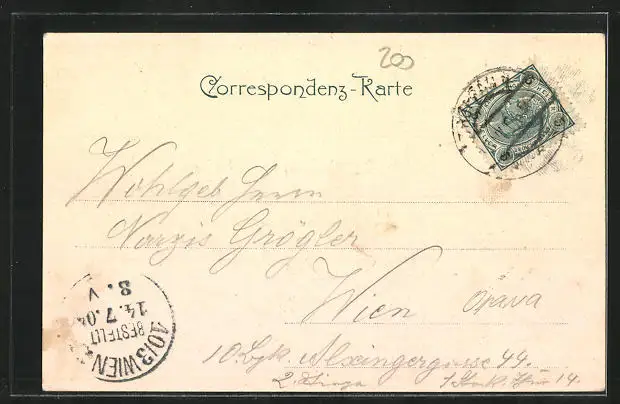 200
Correspondenz-Karte
Wohlgeb Herrn
Narzis Grögler
Wien
10. Bzk. Alxingergasse 44.
2. Stiege 1 Stock. Thür 14.
10/3 WIEN
BESTELLT
14.7.04
8. V